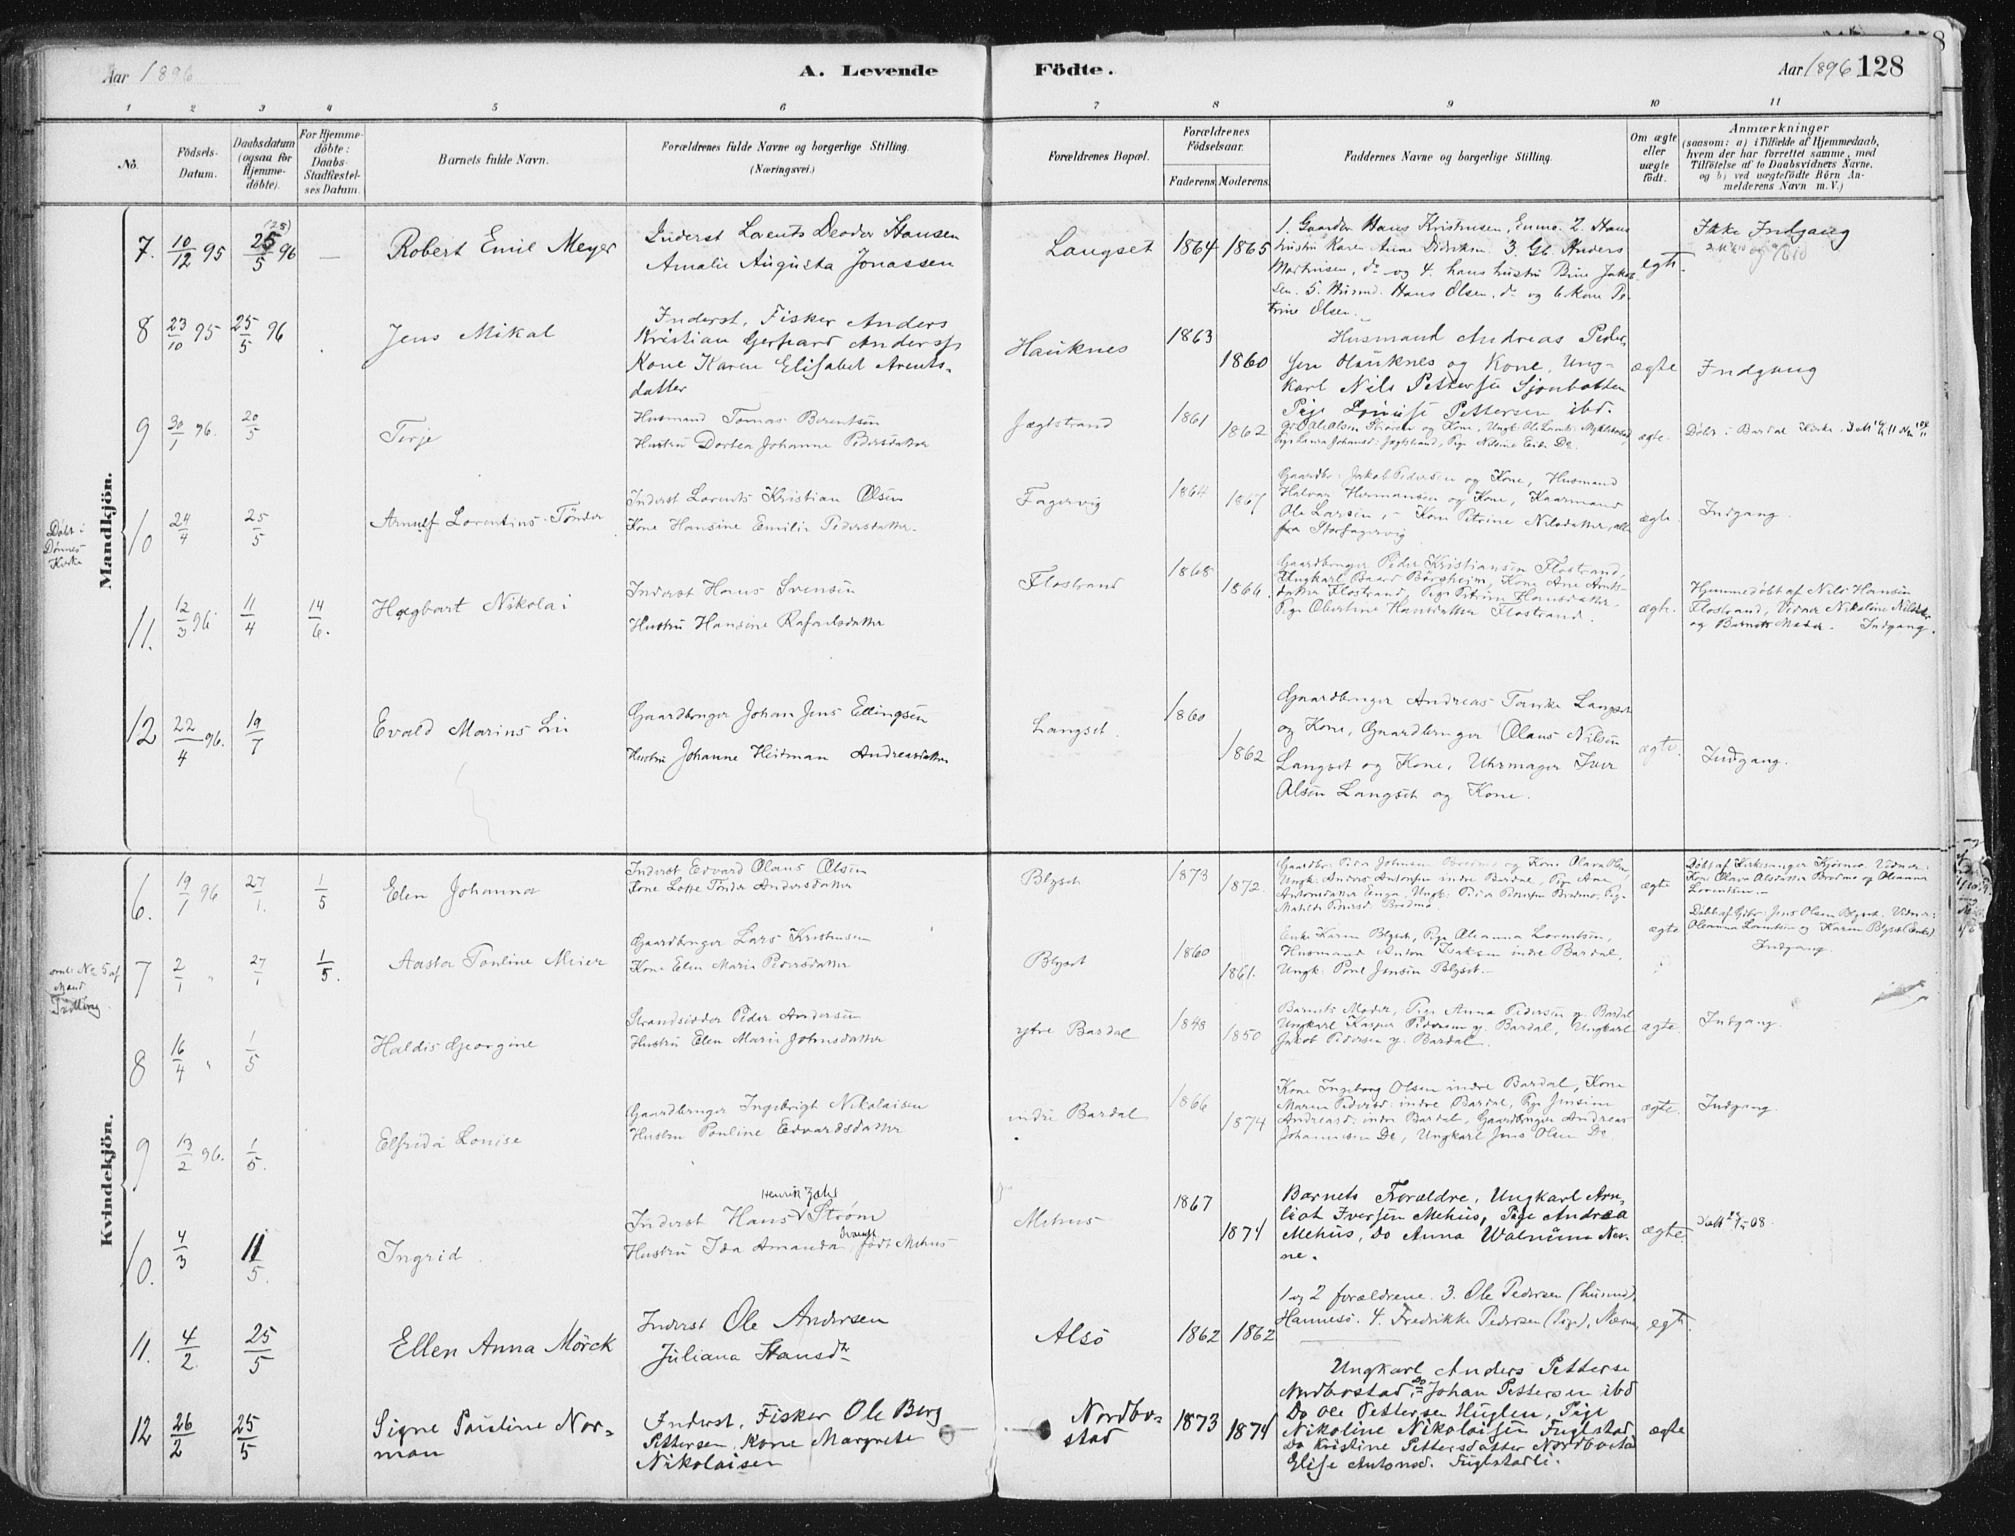 Aar 1896
A. Levende
Födte.
Aar 1896 128
1 2 3 4 5 6 7 8 9 10 11
No.
Födsels-
Datum.
Daabsdatum
(ogsaa for
Hjemme-
döbte).
For Hjemme-
döbte:
Daabs-
Stadfæstel-
ses Datum.
Barnets fulde Navn.
Forældrenes fulde Navne og borgerlige Stilling.
(Næringsvei.)
Forældrenes Bopæl.
Forældrenes
Födselsaar.
Faderens.
Moderens.
Faddernes Navne og borgerlige Stilling.
Om ægte
eller
uægte
födt.
Anmærkninger
(saasom: a) i Tilfælde af Hjemmedaab,
hvem der har forrettet samme, med
Tilföielse af to Daabsvidners Navne,
og b) ved uægtefödte Börn An-
melderens Navn m. V.)
Mandkjön.
7. 10/12 95 (28) 25/5 96 —
Robert Emil Meyer
Inderst Lorents Deodor Hansen
Amalie Augusta Jonassen
Langset 1864 1865
1. Gaardbr Hans Kristensen, Enmo. 2. Hans
hustru Karen Anne Didriksen. 3. Gb. Anders
Martinsen, do og 4. hans hustru Jakob-
sen. 5. Husmd. Hans Olsen, do og 6 Kone Pe-
trine Olsen.
egte.
Ikke Indgang
8 23/10 95 25/5 96
Jens Mikal
Inderst, Fisker Anders
Kristian Gerhard Anders.
Kone Karen Elisabet Arents-
datter
Hauknes 1863 1860
Husmand Andreas Peder-
sen Hauknes og Kone, Ung-
karl Nils Pettersen Sjonbotten
Pige Lovise Pettersen ibd.
ægte
Indgang
9 30/1 96. 20/5
Terje
Husmand Tomas Berentsen
Hustru Dortea Johanne Pedersdatter
Jægtstrand 1861 1862
ægte.
Döbt i Bardal Kirke.
Döbt i
Dønnes
Kirke
10 24/4 25/5
Arnulf Lorentius Tönder
Inderst Lorents Kristian Olsen
Kone Hansine Emilie Pedersdatter.
Fagervig 1864 1867
Gaardbr. Jakob Pedersen og Kone, Husmand
Halvar Hermansen og Kone, Kaarmand
Ole Larsen, - Kone Petrine Nilsdatter, alle
fra Storfagervig
ægte.
Indgang.
11. 12/3 96 11/4 14/6.
Hagbart Nikolai
Inderst Hans Svensen
Hustru Hansine Rafaelsdatter
Flostrand 1868 1866.
Gaardbruger Peder Kristiansen Flostrand,
Ungkarl Baard Börgheim, Kone Ane Ants-
datter Flostrand, Pige Petrine Hansdatter.
Pige Obertine Hansdatter Flostrand.
ægte.
Hjemmedøbt af Nils Hansen
Flostrand, Vidner Nikoline Nilsdtr
og Barnets Moder. Indgang.
12 22/4 96. 19/7
Evald Marius Lie
Gaardbruger Johan Jens Ellingsen
Hustru Johanne Heitman Andreasdatter
Langset. 1860 1862
Gaardbruger Andreas Tanke Langset
og Kone, Gaardbruger Olaus Nilsen
Langset og Kone, Uhrmager Iver
Olsen Langset og Kone.
ægte.
Indgang.
Kvindekjön.
6. 19/1 96 27/1. 1/5
Elen Johanna
Inderst Edvard Olaus Olsen
Kone Lotte Tönder Andersdatter
Blyset 1873 1872.
Gaardbr. Peder Johnsen Bredmo og Kone Olava Olsen,
Ungk. Anders Antonsen indre Bardal, Pige Ane
Antonsdatter Enga, Ungk. Peder Pedersen Bredmo, Pige
Matilde Petersd. Bredmo.
ægte
Döbt af Kirkesanger Kjösnes. Vidner:
Kone Olava Olsdatter Bredmo og Oleanna
Lorentsen.
Tvilling
7 2/1 " 27/1 1/5.
Aasta Pauline Meier
Gaardbruger Lars Kristensen
Kone Elen Marie Pedersdatter
Blyset 1860 1861.
Enke Karen Blyset, Pige Oleanna Lorentsen,
Husmand Anton Isaksen indre Bardal,
Ungk. Paul Jensen Blyset.
ægte
Döbt af Gdbr. Jens Olsen Blyset. Vidner:
Oleanna Lorentsen og Karen Blyset (Enke).
Indgang.
8 16/4 " 1/5
Haldis Georgine
Strandsidder Peder Andersen
Hustru Elen Marie Johnsdatter
ytre Bardal 1848 1850
Barnets Moder, Pige Anna Pedersen y. Bardal
Ungkarl Kasper Pedersen y. Bardal, Ungkarl
Jakob Pedersen y. Bardal.
ægte.
Indgang
9 13/2 96. 1/5.
Elfrida Louise
Gaardbruger Ingebrigt Nikolaisen
Hustru Pauline Edvardsdatter
indre Bardal 1866 1874
Kone Ingeborg Olsen indre Bardal, Kone
Maren Pedersd. indre Bardal, Pige Jensine
Andreasd. indre Bardal, Gaardbruger Andreas
Johannesen Do, Ungkarl Jens Olsen Do.
ægte.
Indgang.
10. 4/3 11/5.
Ingrid.
Henrik Zahl
Inderst Hans Strøm
Hustru Ida Amanda født Mehus
Mehus 1867 1874
Barnets Forældre, Ungkarl Arn-
liot Iversen Mehus, Pige Andrea
Mehus, do Anna Walnum Nes-
ne.
ægte.
11. 4/2. 25/5
Ellen Anna Mörck
Inderst Ole Andersen
Juliana Hansdtr
Alsö 1862 1862
1 og 2 forældrene. 3. Ole Pedersen (husmd),
Hannesö. 4. Fredrikke Pedersen (Pige), Næsna
egte.
12 26/2 25/5
Signe Pauline Nor-
man
Inderst, Fisker Ole Berg
Pettersen, Kone Margrete
Nikolaisen
Nordbo-
stad 1873 1874
Ungkarl Anders Petterse
Nordbostad, do Johan Pettersen ibd
Do Ole Pettersen Huglen, Pige
Nikoline Nikolaisen Fuglstad
Do Kristine Pettersdatter Nordbostad
Elise Antonsd. Fuglstadli.
ægte